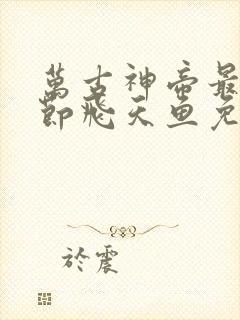 萬古神帝最
節飛天魚免
於震